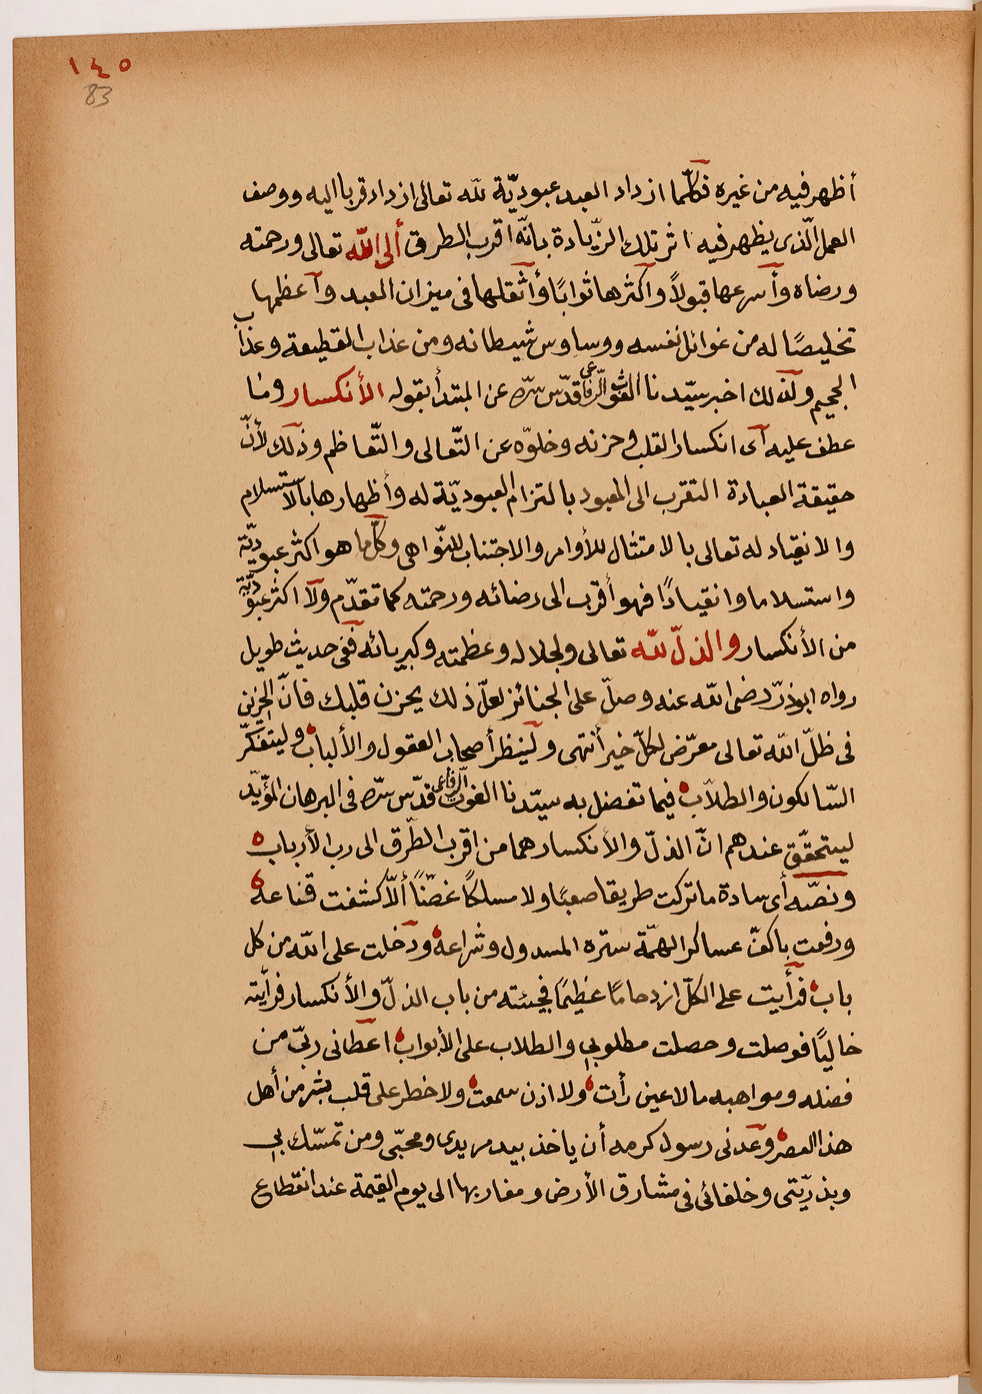 ١٤٥
83
أظهر فيه من غيره فكلّما ازداد العبد عبوديّة لله تعالى ازداد قربا اليه ووصف
العمل الّذى يظهر فيه اثر تلك الزّيادة بانّه اقرب الطرق ألى الله تعالى ورحمته
ورضاه وأسرعها قبولاً وأكثرها ثوابًا وأثقلها فى ميزان العبد وأعظمها
تخليصًا له من غوائل نفسه ووساوس شيطانه ومن عذاب القطيعة وعذاب
الجحيم ولذلك اخبر سيّدنا الغوث الرّفاعى قدّس سرّه عن المبتدأ بقوله الأنكسار وما
عطف عليه أى انكسار القلب وحزنه وخلوّه عن التّعالى والتّعاظم وذلك لأنّ
حقيقة العبادة التقرب الى المعبود بالتزام العبوديّة له وأظهارها بالاستسلام
والانقياد له تعالى بالامتثال للأوامر والاجتناب للنّواهى وكلّما هو اكثر عبوديّة
واستسلاما وانقيادًا فهو أقرب الى رضائه ورحمته كما تقدّم ولا اكثر عبوديّة
من الأنكسار والذلّ لله تعالى ولجلاله وعظمته وكبريائه ففى حديث طويل
رواه ابوذرّ رضى الله عنه وصلّ على الجنائز لعلّ ذلك يحزن قلبك فانّ الحزين
فى ظلّ الله تعالى معرّض لكلّ خير أنتهى ولينظر أصحاب العقول والألباب وليتفكّر
السّالكون والطلاّب فيما تفضل به سيّدنا الغوث الرّفاعى قدّس سرّه فى البرهان المؤيّد
ليتحقّق عندهم انّ الذلّ والأنكسار هما من اقرب الطّرق الى رب الأرباب
ونصّه أى سادة ما تركت طريقا صعبًا ولا مسلكًا غصّنًا ألاّ كشفت قناعه
ورفعت باكفّ عساكر الهمّة ستره المسدول وشراعه ودخلت على الله من كل
باب فرأيت على الكلّ ازدحاما عظيمًا فجئته من باب الذلّ والأنكسار فرأيته
خاليًا فوصلت وحصلت مطلوبى والطلاب على الأبواب اعطانى ربّى من
فضله ومواهبه مالا عين رأت ولا اذن سمعت ولا خطر على قلب بشر من أهل
هذا العصر وعدنى رسول كرمه أن ياخذ بيد مريدى ومحبّى ومن تمسّك بى
وبذريّتى وخلفائى فى مشارق الأرض ومغاربها الى يوم القيمة عند انقطاع